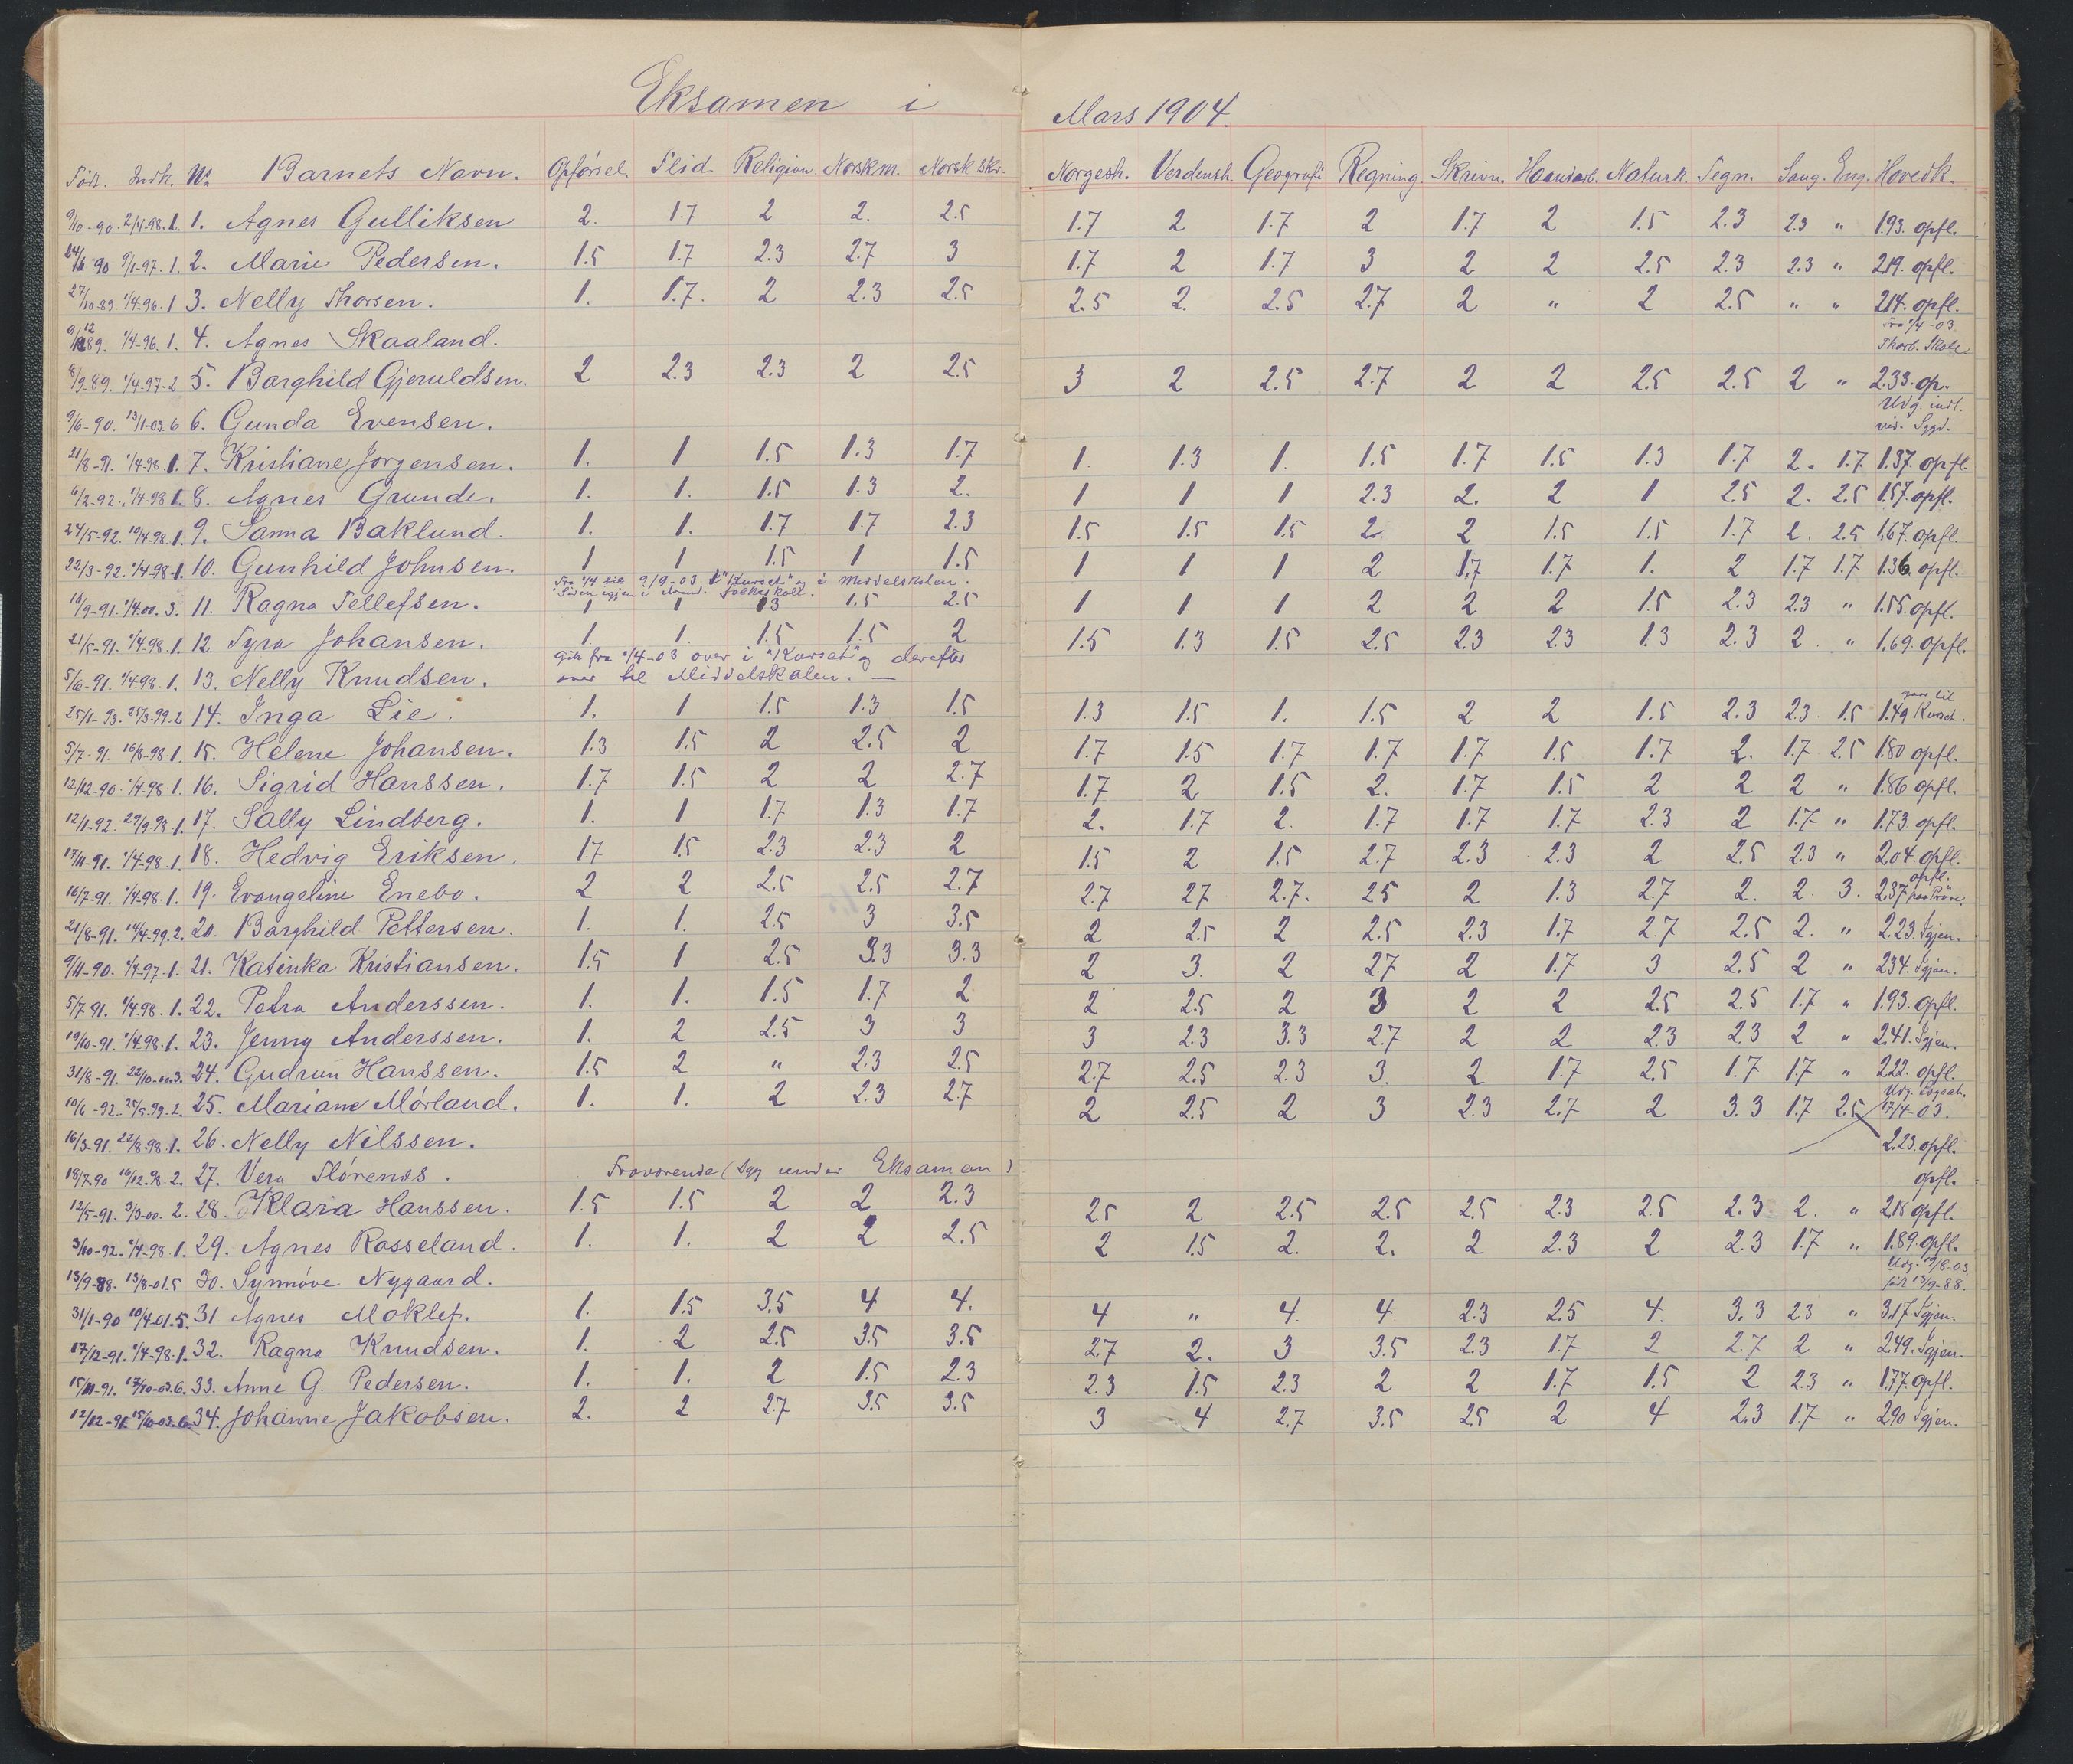 Eksamen i Mars 1904.
Född. Indk. No. Barnets Navn. Opførsel. Flid. Religion. Norskm. Norsk skr. Norgesh. Verdensh. Geografi Regning. Skrivn. Haandarb. Naturk. Tegn. Sang. Eng. Hovedk.
9/10-90. 2/4-98. 1. 1. Agnes Gulliksen 2. 1.7 2 2. 2.5 1.7 2 1.7 2 1.7 2 1.5 2.3 2.3 " 1.93. opfl.
24/6 90 9/1-97. 1. 2. Marie Pedersen. 1.5 1.7 2.3 2.7 3 1.7 2 1.7 3 2 2 2.5 2.3 2.3 " 2.19. opfl.
27/10-89. 1/4-96. 1 3. Nelly Thorsen. 1. 1.7. 2 2.3 2.5 2.5 2. 2.5 2.7 2 " 2 2.5 " " 2.14. opfl.
89. 1/4-96. 1. 4. Agnes Skaaland. Fra 1/4-03. Thorb. Skole.
8/9-89. 1/4-97. 2 5. Borghild Gjeruldsen. 2 2.3 2.3 2 2.5 3 2 2.5 2.7 2 2 2.5 2.5 2 " 2.33. op.
9/6-90. 13/1-03. 6 6. Gunda Evensen. Udg. indl.
21/8-91. 1/4-98. 1. 7. Kristiane Jorgensen. 1. 1 1.5 1.3 1.7 1. 1.3 1. 1.5 1.7 1.5 1.3 1.7 2. 1.7 1.37. opfl.
6/2-92. 1/4-98 1. 8. Agnes Grunde. 1. 1. 1.5 1.3 2. 1 1 1 2.3 2. 2 1 2.5 2. 2.5 1.57. opfl.
24/5-92. 19/4-98. 1. 9. Sanna Baklund. 1. 1. 1.7 1.7 2.3 1.5 1.5 1.5 2. 2 1.5 1.5 1.7 2. 2.5 1.67. opfl.
22/3-92. 1/4-98. 1. 10. Gunhild Johnsen. 1 1 1.5 1 1.5 1 1 1 2 1.7 1.7 1. 2 1.7 1.7 1.36. opfl.
Fra 1/4 til 9/9-03 i "Kurset" og i Middelskolen.
Siden igjen i Arend. Folkeskole.
16/9-91. 1/4-00. 3. 11. Ragna Tellefsen. 1 1 1.3 1.5 2.5 1 1 1 2 2 2 1.5 2.3 2.3 " 1.55. opfl.
21/5-91. 1/4-98. 1. 12. Tyra Johansen. 1. 1. 1.5 1.5 2 1.5 1.3 1.5 2.5 2.3 2.3 1.3 2.3 2 " 1.69. opfl.
Gik fra 1/4-03 over i "Kurset" og derefter
5/6-91. 1/4-98 1. 13. Nelly Knudsen. over til Middelskolen. —
25/11-93. 25/3-99. 2 14. Inga Lie. 1. 1 1.5 1.3 1.5 1.3 1.5 1. 1.5 2 2 1.5 2.3 2.3 1.5 1.49 gaar til Kurset.
5/7-91. 16/8-98 1. 15. Helene Johansen. 1.3 1.5 2 2.5 2 1.7 1.5 1.7 1.7 1.7 1.5 1.7 2. 1.7 2.5 1.80 opfl.
12/12-90. 1/4-98 1. 16. Sigrid Hanssen. 1.7 1.5 2 2 2.7 1.7 2 1.5 2. 1.7 1.5 2 2 2 " 1.86 opfl.
12/1-92. 29/9-98. 1. 17. Sally Lindberg. 1. 1 1.7 1.3 1.7 2. 1.7 2. 1.7 1.7 1.7 2.3 2 1.7 " 1.73 opfl.
17/11-91. 1/4-98. 1. 18. Hedvig Eriksen. 1.7 1.5 2.3 2.3 2 1.5 2 1.5 2.7 2.3 2.3 2 2.5 2.3 " 2.04. opfl.
16/7-91. 1/4-98. 1. 19. Evangeline Enebo. 2 2 2.5 2.5 2.7 2.7 2.7 2.7. 2.5 2 1.3 2.7 2. 2. 3. 2.37 opfl. paa Prøve.
21/8-91. 14/4-99. 2. 20. Borghild Pettersen. 1. 1. 2.5 3 3.5 2 2.5 2 2.5 2.3 1.7 2.7 2.5 2. " 2.23. Igjen.
9/11-90. 1/4-97. 1. 21. Katinka Kristiansen. 1.5 1 2.5 3.3 3.3 2 3. 2 2.7 2 1.7 3 2.5 2 " 2.34. Igjen.
5/7 91. 1/4-98. 1. 22. Petra Anderssen. 1. 1. 1.5 1.7 2 2 2.5 2 3 2 2 2.5 2.5 1.7 " 1.93. opfl.
19/10-91. 1/4-98. 1. 23. Jenny Anderssen. 1. 2 2.5 3 3 3 2.3 3.3 2.7 2 2 2.3 2.3 2 " 2.41. Igjen.
31/8-91. 22/10-00. 3. 24. Gudrun Hanssen. 1.5 2 " 2.3 2.5 2.7 2.5 2.3 3. 2 1.7 2.5 1.7 1.7 " 2.22. opfl.
10/6-92. 25/5-99. 2. 25. Mariane Mórland. 1. 1. 2 2.3 2.7 2 2.5 2 3 2.3 2.7 2 3.3 1.7 2.5 17/4-03.
16/3-91. 22/8-98. 1. 26. Nelly Nilssen. 2.23. opfl.
18/7-90 16/12-98. 2. 27. Vera Flórenæs. Fraværende (syg under Eksamen) opfl.
12/5-91. 3/3-00. 2. 28. Klara Hanssen. 1.5 1.5 2 2 2.3 2.5 2 2.5 2.5 2.5 2.3 2.5 2.3 2. " 2.18 opfl.
3/10-92. 1/4-98. 1. 29. Agnes Rosseland. 1. 1. 2 2 2.5 2 1.5 2. 2. 2 2.3 2 2.3 1.7 " 1.89. opfl.
13/9-88. 13/8-01. 5 30. Synnóve Nygaard. Udg. 19/8-03. född 13/9-88.
31/1-90 10/4-01. 5. 31 Agnes Moklef. 1. 1.5 3.5 4 4. 4 " 4. 4. 2.3 2.5 4. 3.3 2.3 " 3.17 Igjen.
17/12-91. 1/4-98. 1. 32. Ragna Knudsen. 1. 2 2.5 3.5 3.5 2.7 2. 3 3.5 2.3 1.7 2 2.7 2 " 2.49. Igjen.
15/11-91. 17/10-03. 6. 33. Anne G. Pedersen. 1. 1. 2 1.5 2.3 2.3 1.5 2.3 2 2 1.7 1.5 2 2.3 " 1.77 opfl.
12/12-91. 15/10-03. 6. 34. Johanne Jakobsen. 2. 2 2.7 3.5 3.5 3 4 2.7 3.5 2.5 2 4 2.3 1.7 " 2.90 Igjen.